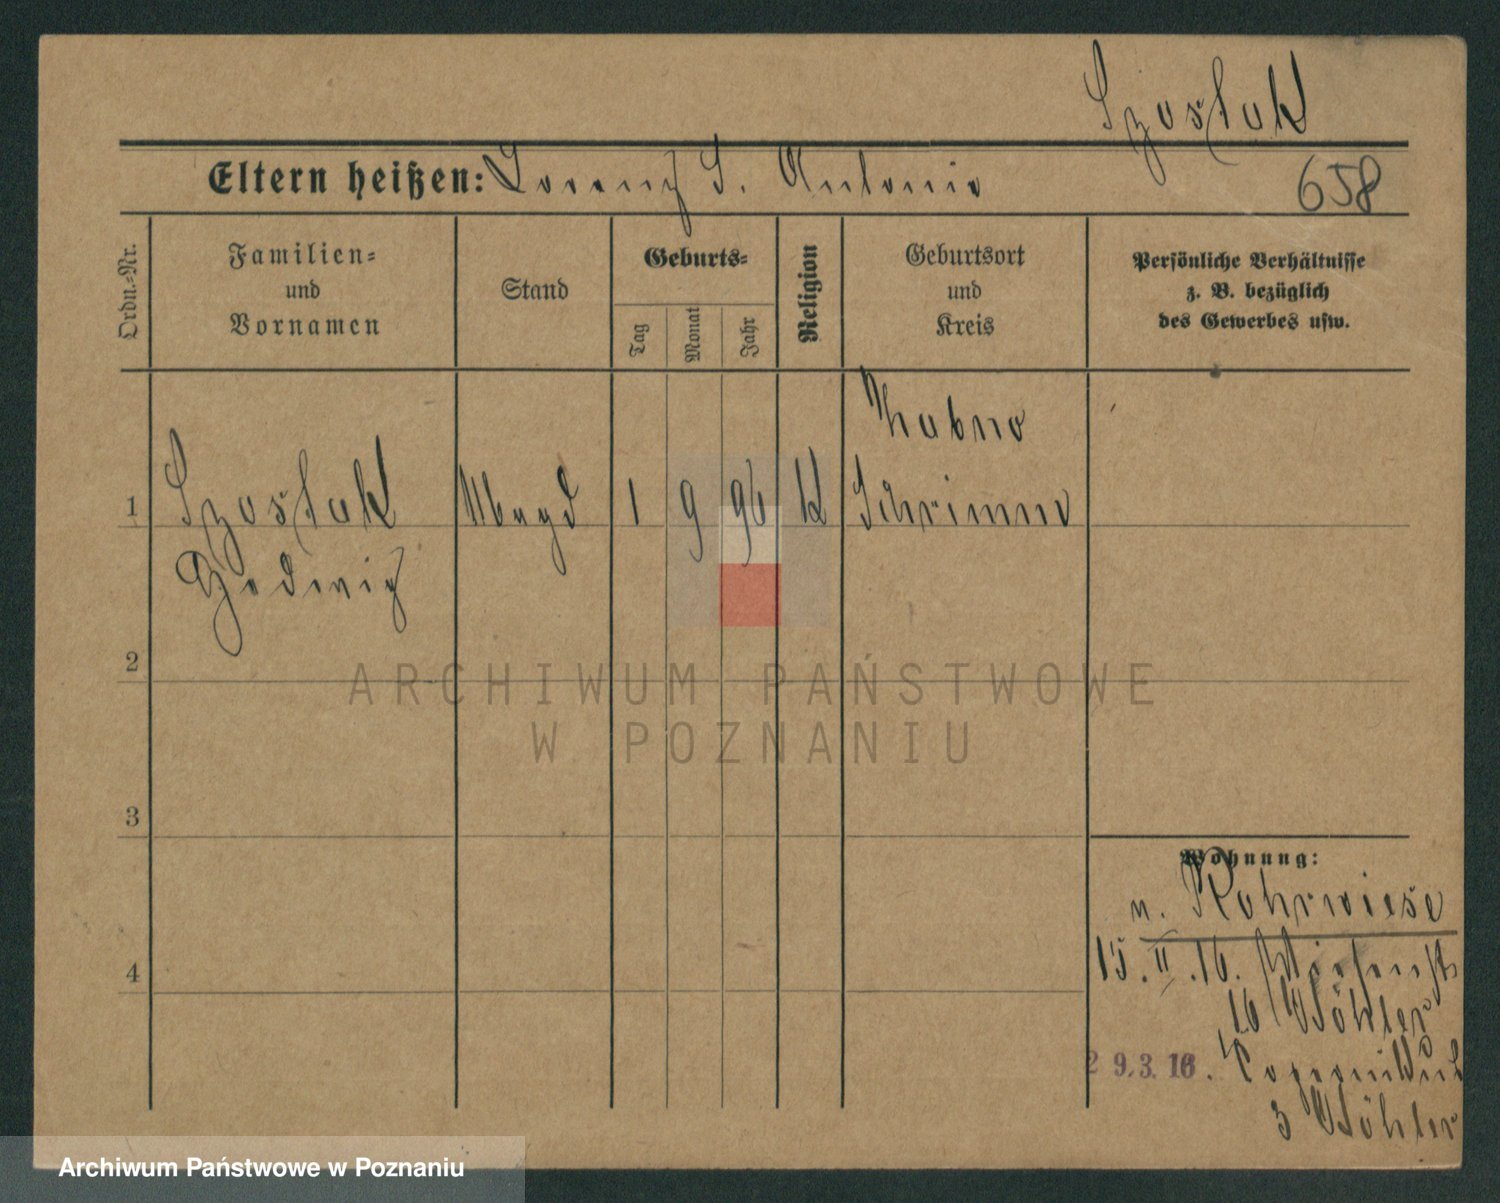 Szostak
Eltern heißen: Lorenz S. Antonie
658
Ordn.-Nr.
Familien-
und
Vornamen
Stand
Geburts-
Tag
Monat
Jahr
Religion
Geburtsort
und
Kreis
Persönliche Verhältnisse
z. B. bezüglich
des Gewerbes usw.
Zabno
1 Szostak Magd 1 9 96 K Schrimm
Hedwig
2
ARCHIWUM PAŃSTWOWE
W POZNANIU
3
4
Wohnung:
n. Rohrwiese
15.II.16. Wiesenstr
16 Wöhler
29.3.16.
3 Wöhler
Archiwum Państwowe w Poznaniu